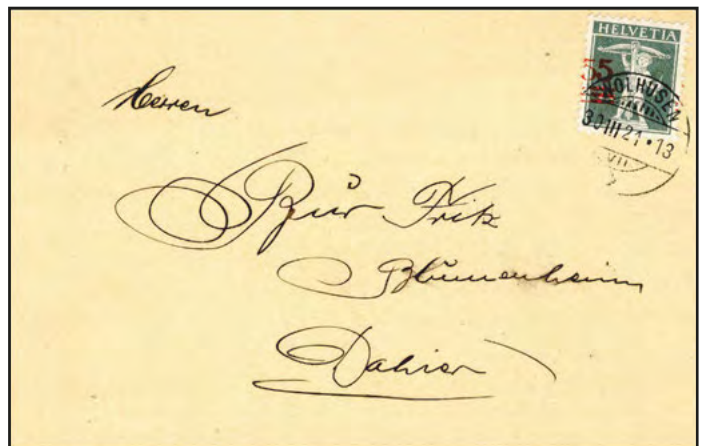 HELVETIA
5
WOLHUSEN
30III21•13
Herren
Fritz
Blumenheim
Dahier